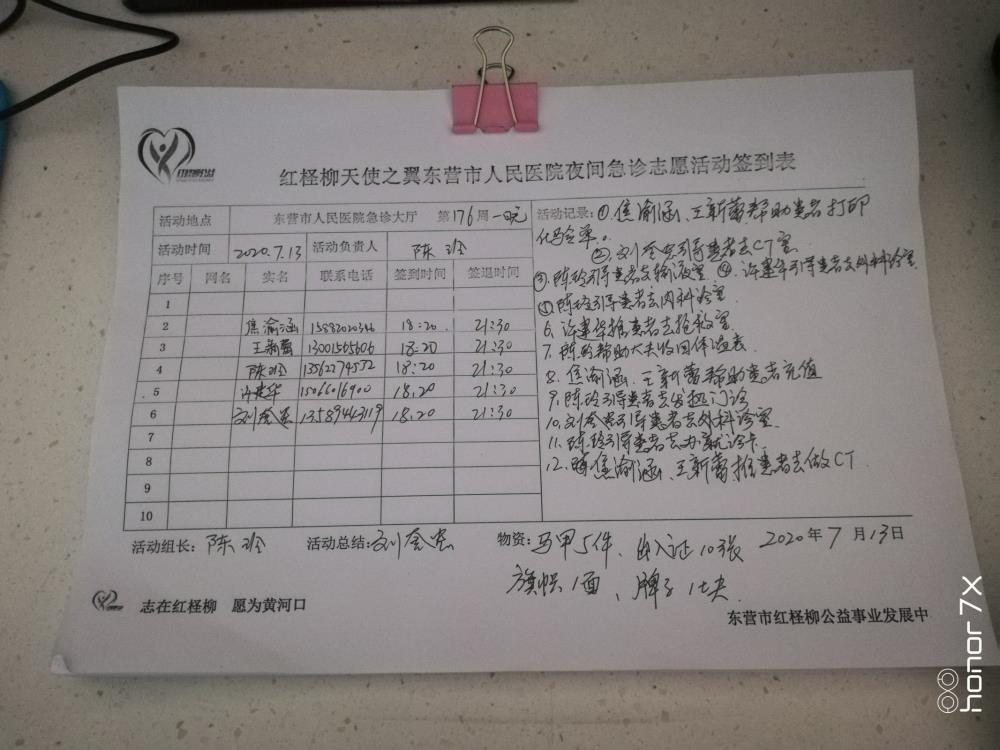 红柽柳天使之翼东营市人民医院夜间急诊志愿活动签到表
活动地点 东营市人民医院急诊大厅 第176周一晚
活动时间 2020.7.13 活动负责人 陈玲
序号 网名 实名 联系电话 签到时间 签退时间
1
2 焦渝涵 15882020346 18:20 21:30
3 王新蕾 13001565606 18:20 21:30
4 陈玲 13562774552 18:20 21:30
5 许建华 15066016900 18:20 21:30
6 刘奎忠 13589443119 18:20 21:30
7
8
9
10
活动记录:①焦渝涵、王新蕾帮助患者打印
化验单。
②刘奎忠引导患者去CT室
③陈玲引导患者去输液室 ④许建华引导患者去外科诊室
⑤陈玲引导患者去内科诊室
6、许建华推患者去抢救室
7、陈玲帮助大夫收回体温表
8、焦渝涵、王新蕾帮助患者充值
9、陈玲引导患者去发热门诊
10、刘奎忠引导患者去外科诊室
11、陈玲引导患者去办就诊卡
12、焦渝涵、王新蕾推患者去做CT
活动组长:陈玲 活动总结:刘奎忠 物资:马甲5件、出入证10张 2020年7月13日
旗帜1面、牌子1块
志在红柽柳 愿为黄河口
东营市红柽柳公益事业发展中
honor 7X